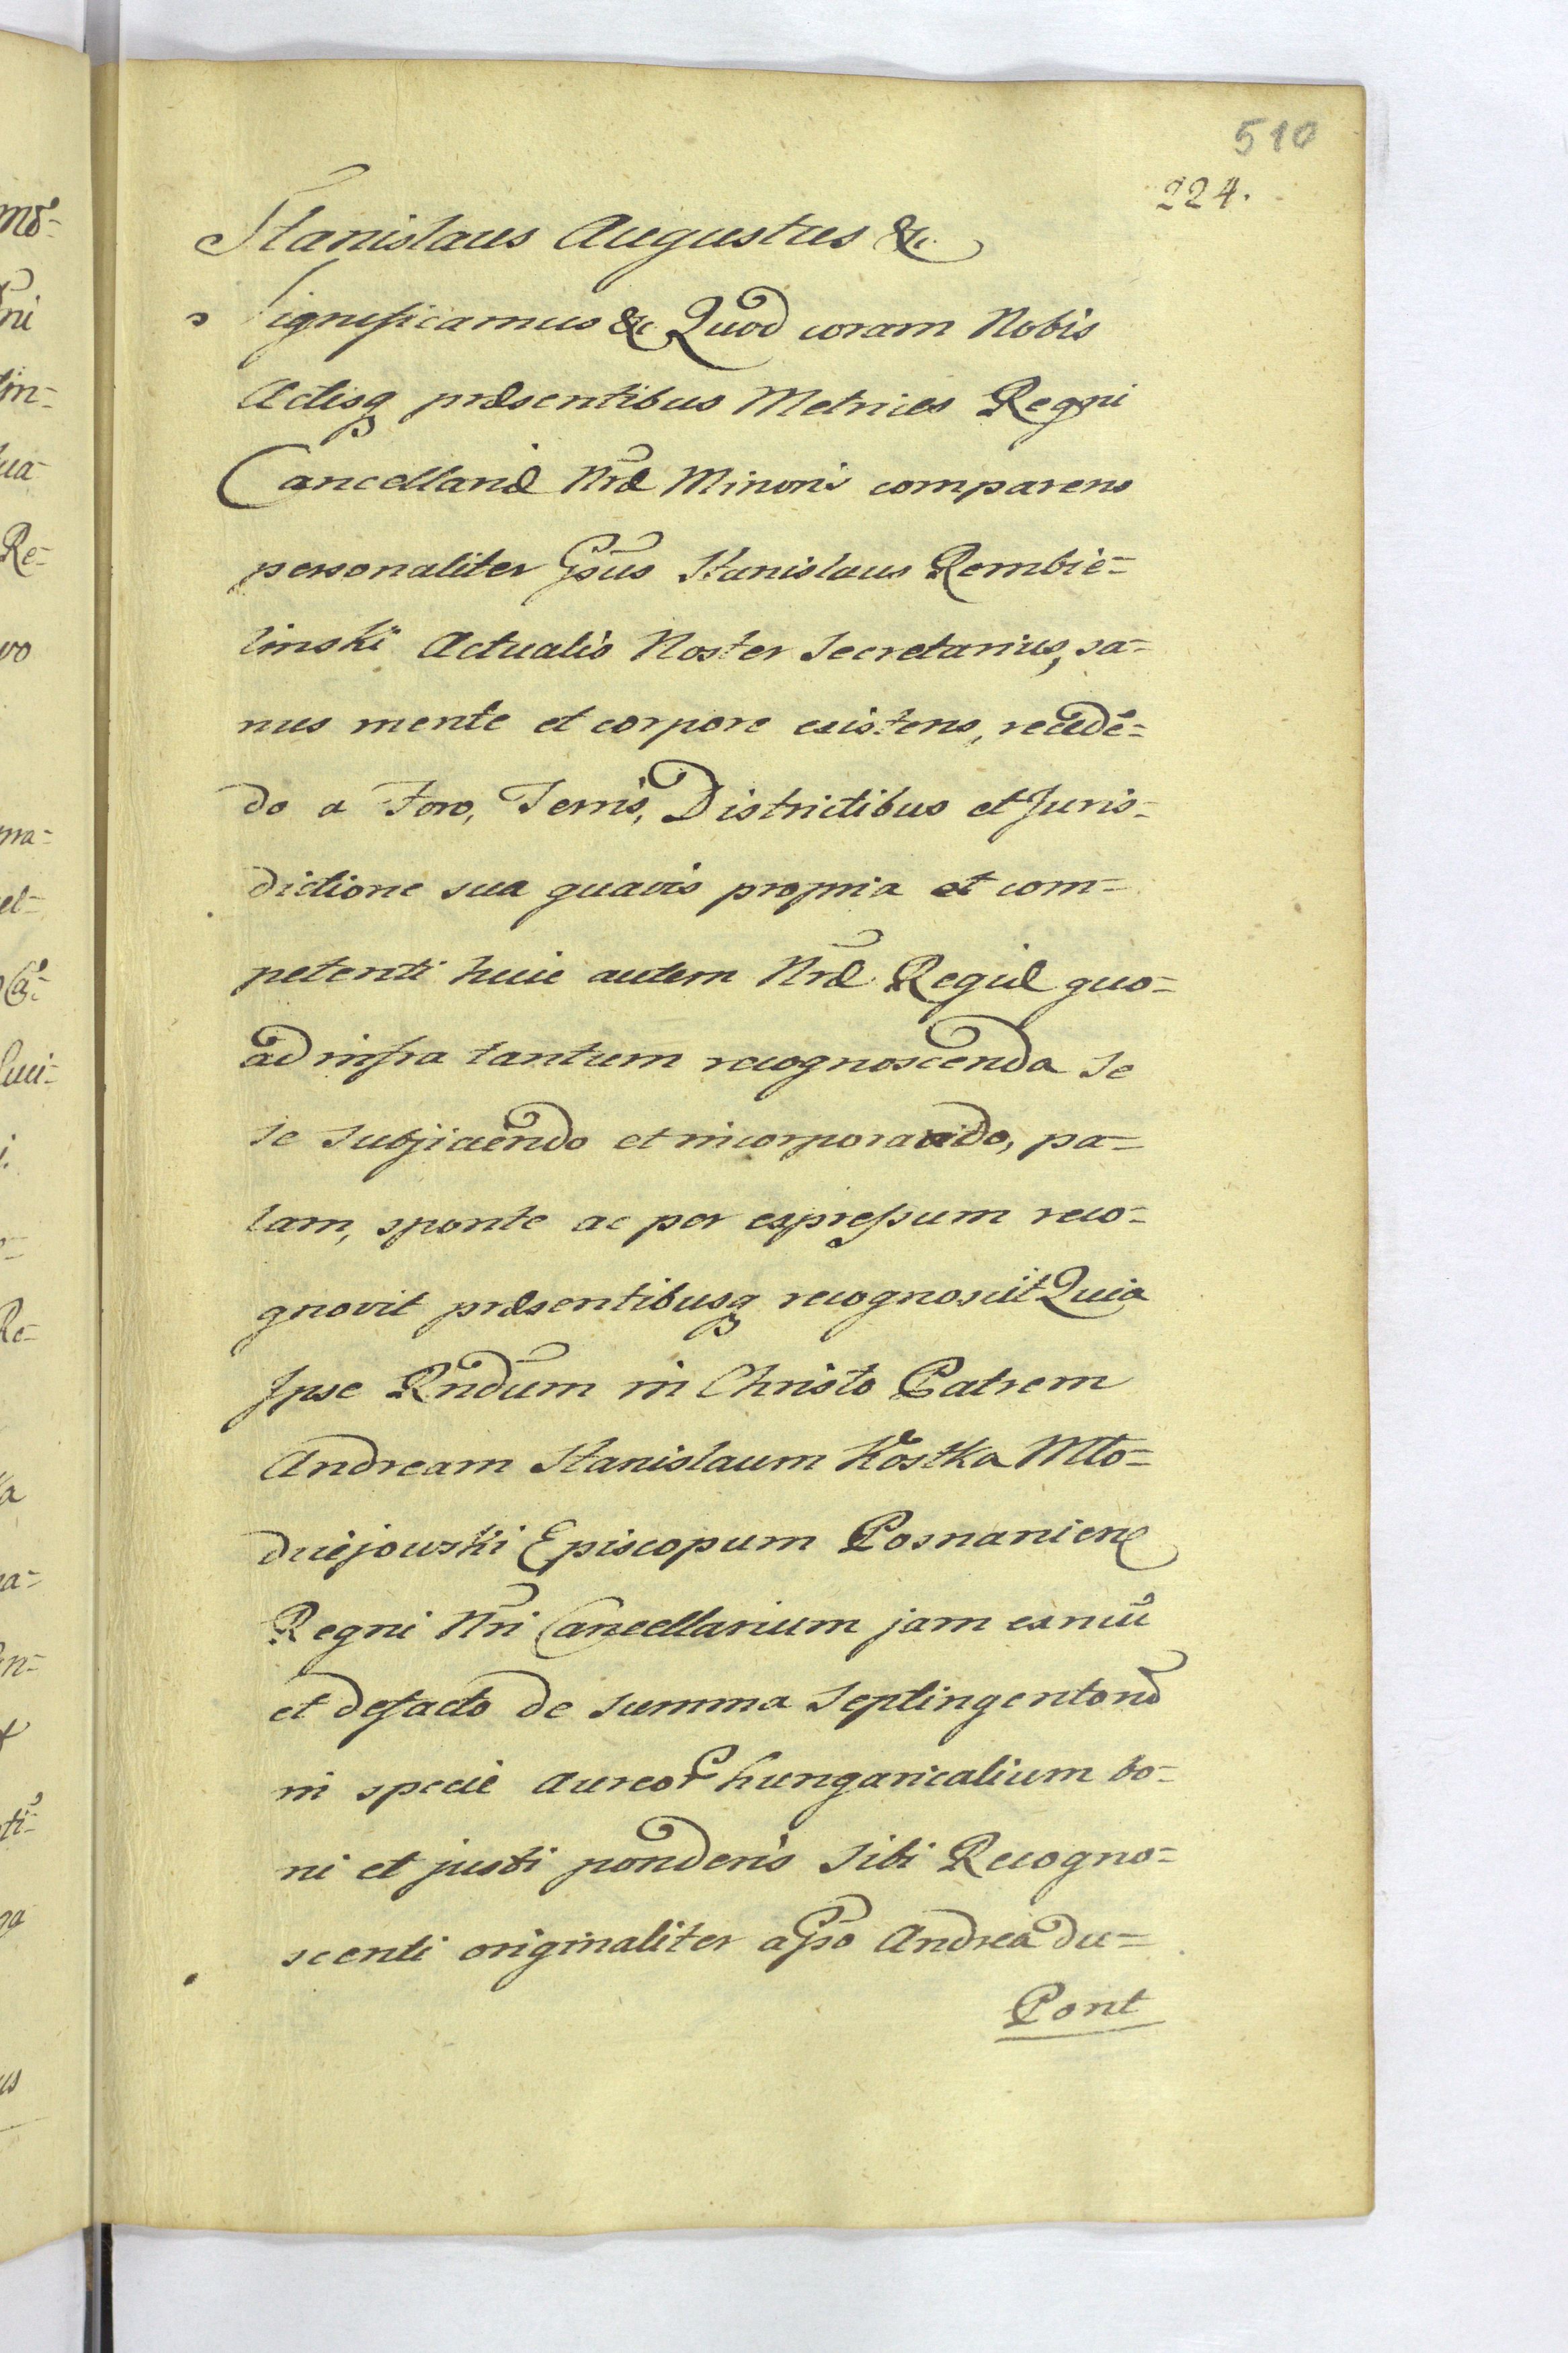 510
224.
Stanislaus Augustus &c.
Significamus &c Quod coram Nobis
Actisq́ præsentibus Metrices Regni
Cancellariæ Nræ Minoris comparens
personaliter Gsus Stanislaus Rembie=
linski Actualis Noster Secretarius, sa=
nus mente et corpore existens, recedē=
do a Foro, Terris, Districtibus et Juris=
dictione sua quavis propria et com=
petenti huic autem Nræ Regiæ quo=
ad infra tantum recognoscenda se
se subjiciendo et incorporando, pa=
lam, sponte ac per expressum reco=
gnovit præsentibusq́ recognoscit Quia
Ipse Rndum in Christo Patrem
Andream Stanislaum Kostka Mło=
dziejowski Episcopum Posnanien
Regni Nri Cancellarium jam ex nūc
et defacto de summa Septingentorū
in specie aureor hungaricalium bo=
ni et justi ponderis sibi Recogno=
scenti originaliter a Gso Andrea du=
Pont